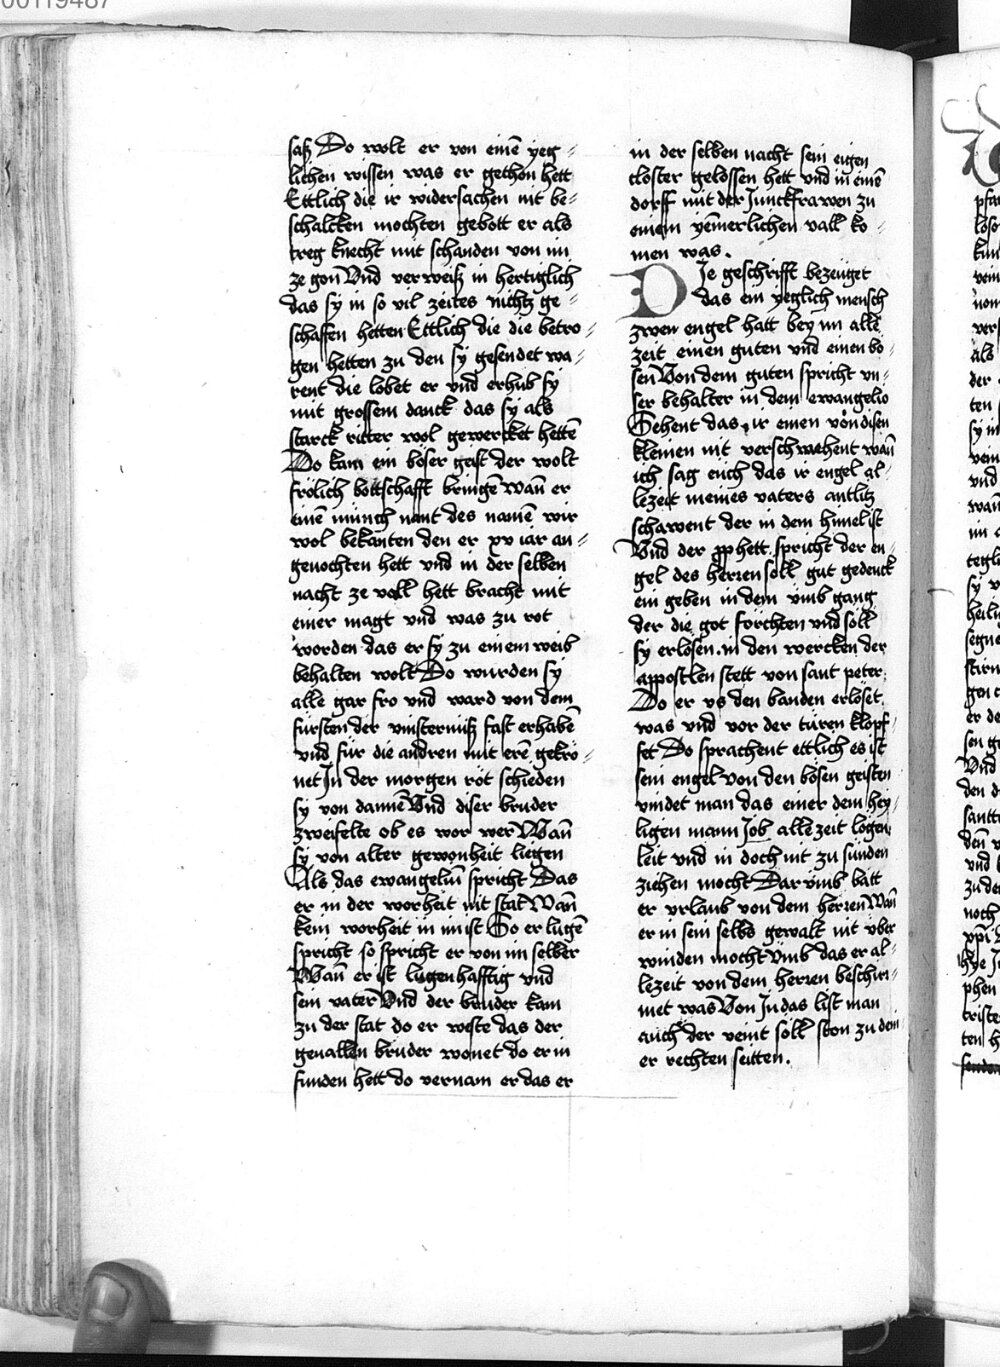 saß Do wolt er von einē yeg⸗
lichen wissen was er gethon hett
Ettlich die ir widersachen nit be⸗
schalcken mochten gebott er als
treg knecht mit schanden von im
ze gon Vnd verweiß in hertiglich
das sy in so vil zeites nichtz ge⸗
schaffen hetten Ettlich die die betro⸗
gen hetten zu den sy gesendet wa⸗
rent die lobet er vnd erhub sy
mit grossem danck das sy als
starck ritter wol gewercket hettē
Do kam ein böser geist der wolt
frölich bottschafft bringē wañ er
einē münch nant des namē wir
wol bekanten den er xv iar an⸗
geuochten hett vnd in der selben
nacht ze vall hett bracht mit
einer magt vnd was zu rot
worden das er sy zu einem weib
behalten wolt Do wurden sy
alle gar fro vnd ward von dem
fürsten der vinsternüß fast erhabē
vnd für die andren mit erē gekrö⸗
net In der morgen röt schieden
sy von dannē Vnd diser bruder
zweifelte ob es wor wer Wañ
sy von alter gewonheit liegen
Als das ewangeliū spricht Das
er in der worheit nit stat Wañ
kein worheit in im ist So er lugē
spricht so spricht er von im selber
Wañ er ist lugenhafftig vnd
sein vater Vnd der bruder kam
zu der stat do er weste das der
geuallen bruder wonet do er in
funden hett do vernam er das er
in der selben nacht sein eigen
closter gelossen hett vnd in einē
dorff mit der Junckfrawen zu
einem yēmerlichen vall ko⸗
men was.
DJe geschrifft bezeuget
das ein yeglich mensch
zwen engel hatt bey im alle
zeit einen guten vnd einen bö⸗
sen Von dem guten spricht vn⸗
ser behalter in dem ewangelio
Sehent das ir einen von disen
kleinen nit verschmehent wañ
ich sag euch das ir engel al⸗
lezeit meines vaters antlitz
schawent der in dem himel ist
Vnd der pphett spricht der en⸗
gel des herren soll gut gedenck
ein geben in dem vmb gang
der die got förchten vnd soll
sy erlösen. in den wercken der
appostlen stett von sant peter.
Do er vs den banden erlöset
was vnd vor der türen klopf⸗
fet Do sprachent ettlich es ist
sein engel Von den bösen geisten
vindet man das einer dem hey⸗
ligen mann Job alle zeit logen
leit vnd in doch nit zu sünden
ziehen mocht Dar vmb batt
er vrlaub von dem herren Wañ
er in sein selbs gewalt nit über
winden mocht Vmb das er al⸗
lezeit von dem herren beschir⸗
met was Von Judas list man
auch der veint soll ston zu dein
er rechten seitten.